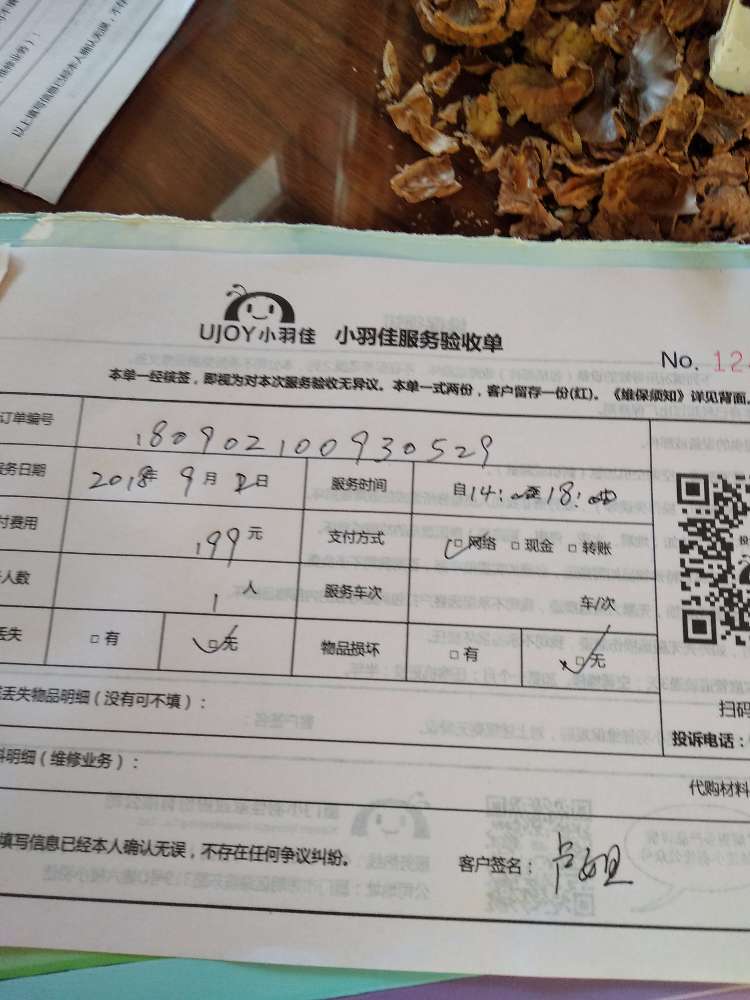 以上填写信息已经本人确认无误,不存
UJOY小羽佳 小羽佳服务验收单
No. 12
本单一经核签，即视为对本次服务验收无异议。本单一式两份，客户留存一份(红)。《维保须知》详见背面。
订单编号 180902100930529
务日期 2018年 9月 2日 服务时间 自14:00至18:00
付费用 199元 支付方式 ☑网络 □现金 □转账
人数 1人 服务车次 车/次
丢失 □有 ☑无 物品损坏 □有 ☑无
丢失物品明细（没有可不填）：
扫码
投诉电话：
料明细（维修业务）：
代购材料
填写信息已经本人确认无误，不存在任何争议纠纷。 客户签名：卢姐